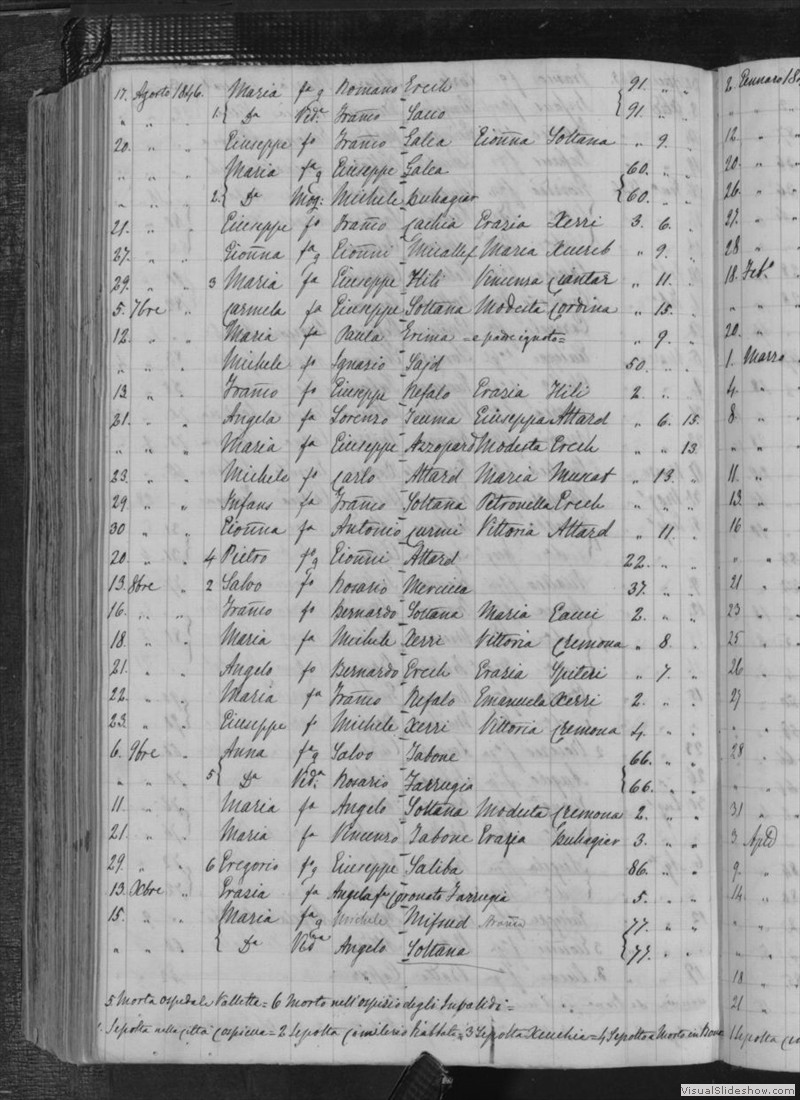 17. Agosto 1846. Maria fa g Romano Grech 91. " "
" " " 1. { Da Veda. Franco Sacco 91. " "
20. " " Giuseppe fo Franco Galea Gionna Soltana " 9. "
" " " Maria fa g Giuseppe Galea 60. " "
" " " 2. { Da Mog: Michele Buhagiar 60. " "
21. " " Giuseppe fo Franco Cachia Grazia Xerri 3. 6. "
27. " " Gionna fa g Gionni Micallef Maria Xuereb " 9. "
29. " " 3 Maria fa Giuseppe Hili Vincenza Ciantar " 11. "
5. 7bre " Carmela fa Giuseppe Soltana Modesta Cordina " 15. "
12. " " Maria fa Paula Grima = e padre ignoto = " 9. "
" " " Michele fo Ignazio Sajd 50. " "
13. " " Franco fo Giuseppe Refalo Grazia Hili 2. " "
21. " " Angela fa Lorenzo Teuma Giuseppa Attard " 6. 15.
" " " Maria fa Giuseppe Azzopard Modesta Grech " " 13.
23. " " Michele fo Carlo Attard Maria Muscat " 13. "
29 " " Infans fa Franco Soltana Petronella Grech " " "
30 " " Gionna fa Antonio Curmi Vittoria Attard " 11. "
20. " " 4 Pietro fo g Gionni Attard 22. " "
13. 8bre " 2 Salvo fo Rosario Mercieca 37. " "
16. " " Franco fo Bernardo Soltana Maria Gauci 2. " "
18. " " Maria fa Michele Xerri Vittoria Cremona " 8. "
21. " " Angelo fo Bernardo Grech Grazia Spiteri " 7. "
22. " " Maria fa Franco Refalo Emanuela Xerri 2. " "
23 " " Giuseppe fo Michele Xerri Vittoria Cremona 4. " "
6. 9bre " Anna fa g Salvo Tabone 66. " "
" " " 5 { Da Veda. Rosario Farrugia 66. " "
11. " " Maria fa Angelo Soltana Modesta Cremona 2. " "
21. " " Maria fa Vincenzo Tabone Grazia Buhagiar 3. " "
29. " " 6 Gregorio fo g Giuseppe Saliba 86. " "
13. Xbre " Grasia fa Angela fa Coronato Farrugia 5. " "
15. " " Maria fa g Michele Mifsud 77. " "
" " " { Da Veda Angelo Soltana 77. " "
5 Morta ospedale Valletta = 6 Morto nell'ospizio degli Invalidi =
1. Sepolta nella Città Cospicua = 2 Sepolta Rabbato = 3 Sepolta Xeuchia = 4 Sepolto e Morto in
2 Gennaro 18
" "
12 "
20. "
26 "
27. "
28 "
18. Feb.o
" "
20. "
1. Marzo
4. "
8 "
" "
11 "
13. "
16 "
" "
21 "
23 "
25 "
26 "
27 "
" "
28 "
" "
31 "
3 Aple
9. "
14 "
" "
" "
18 "
21 "
1 Sepolta
VisualSlideshow.com